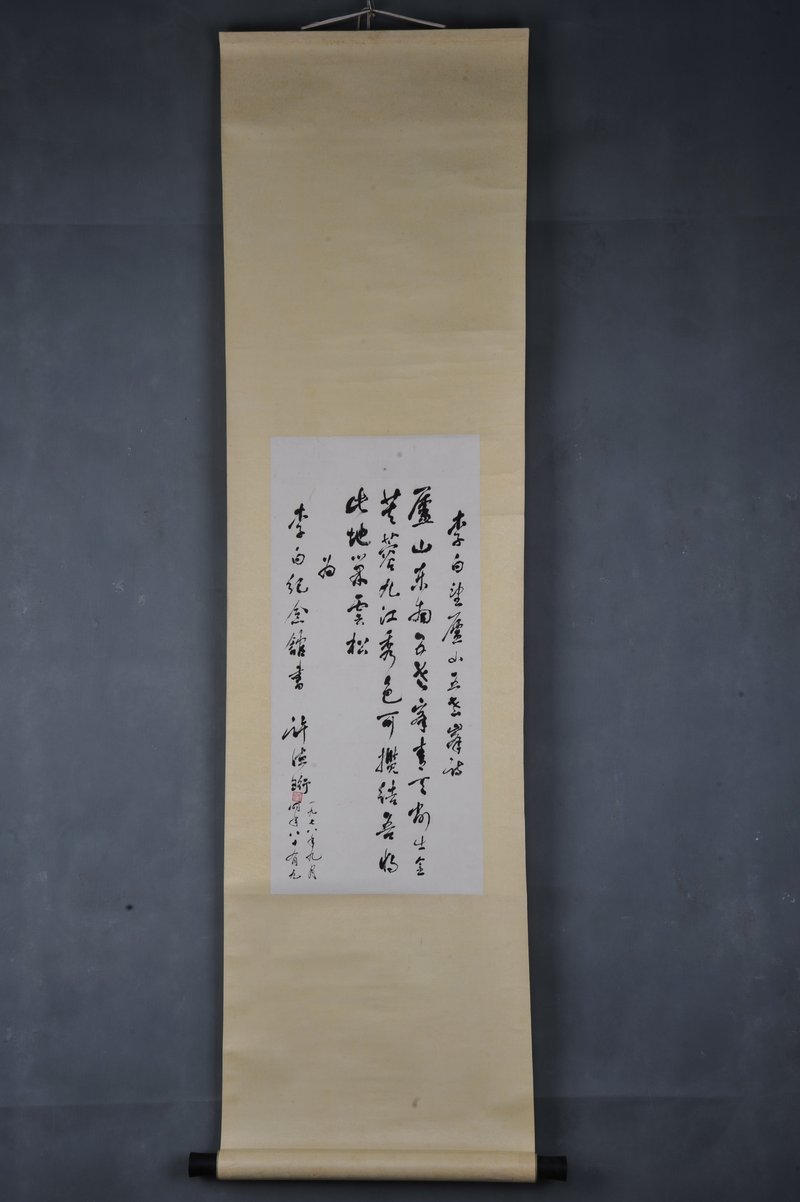 李白望廬山五老峯詩
廬山东南五老峯青天削出金
芙蓉九江秀色可攬結吾將
此地巢雲松
为
李白纪念館书 许德珩
一九七八年九月
时年八十有九